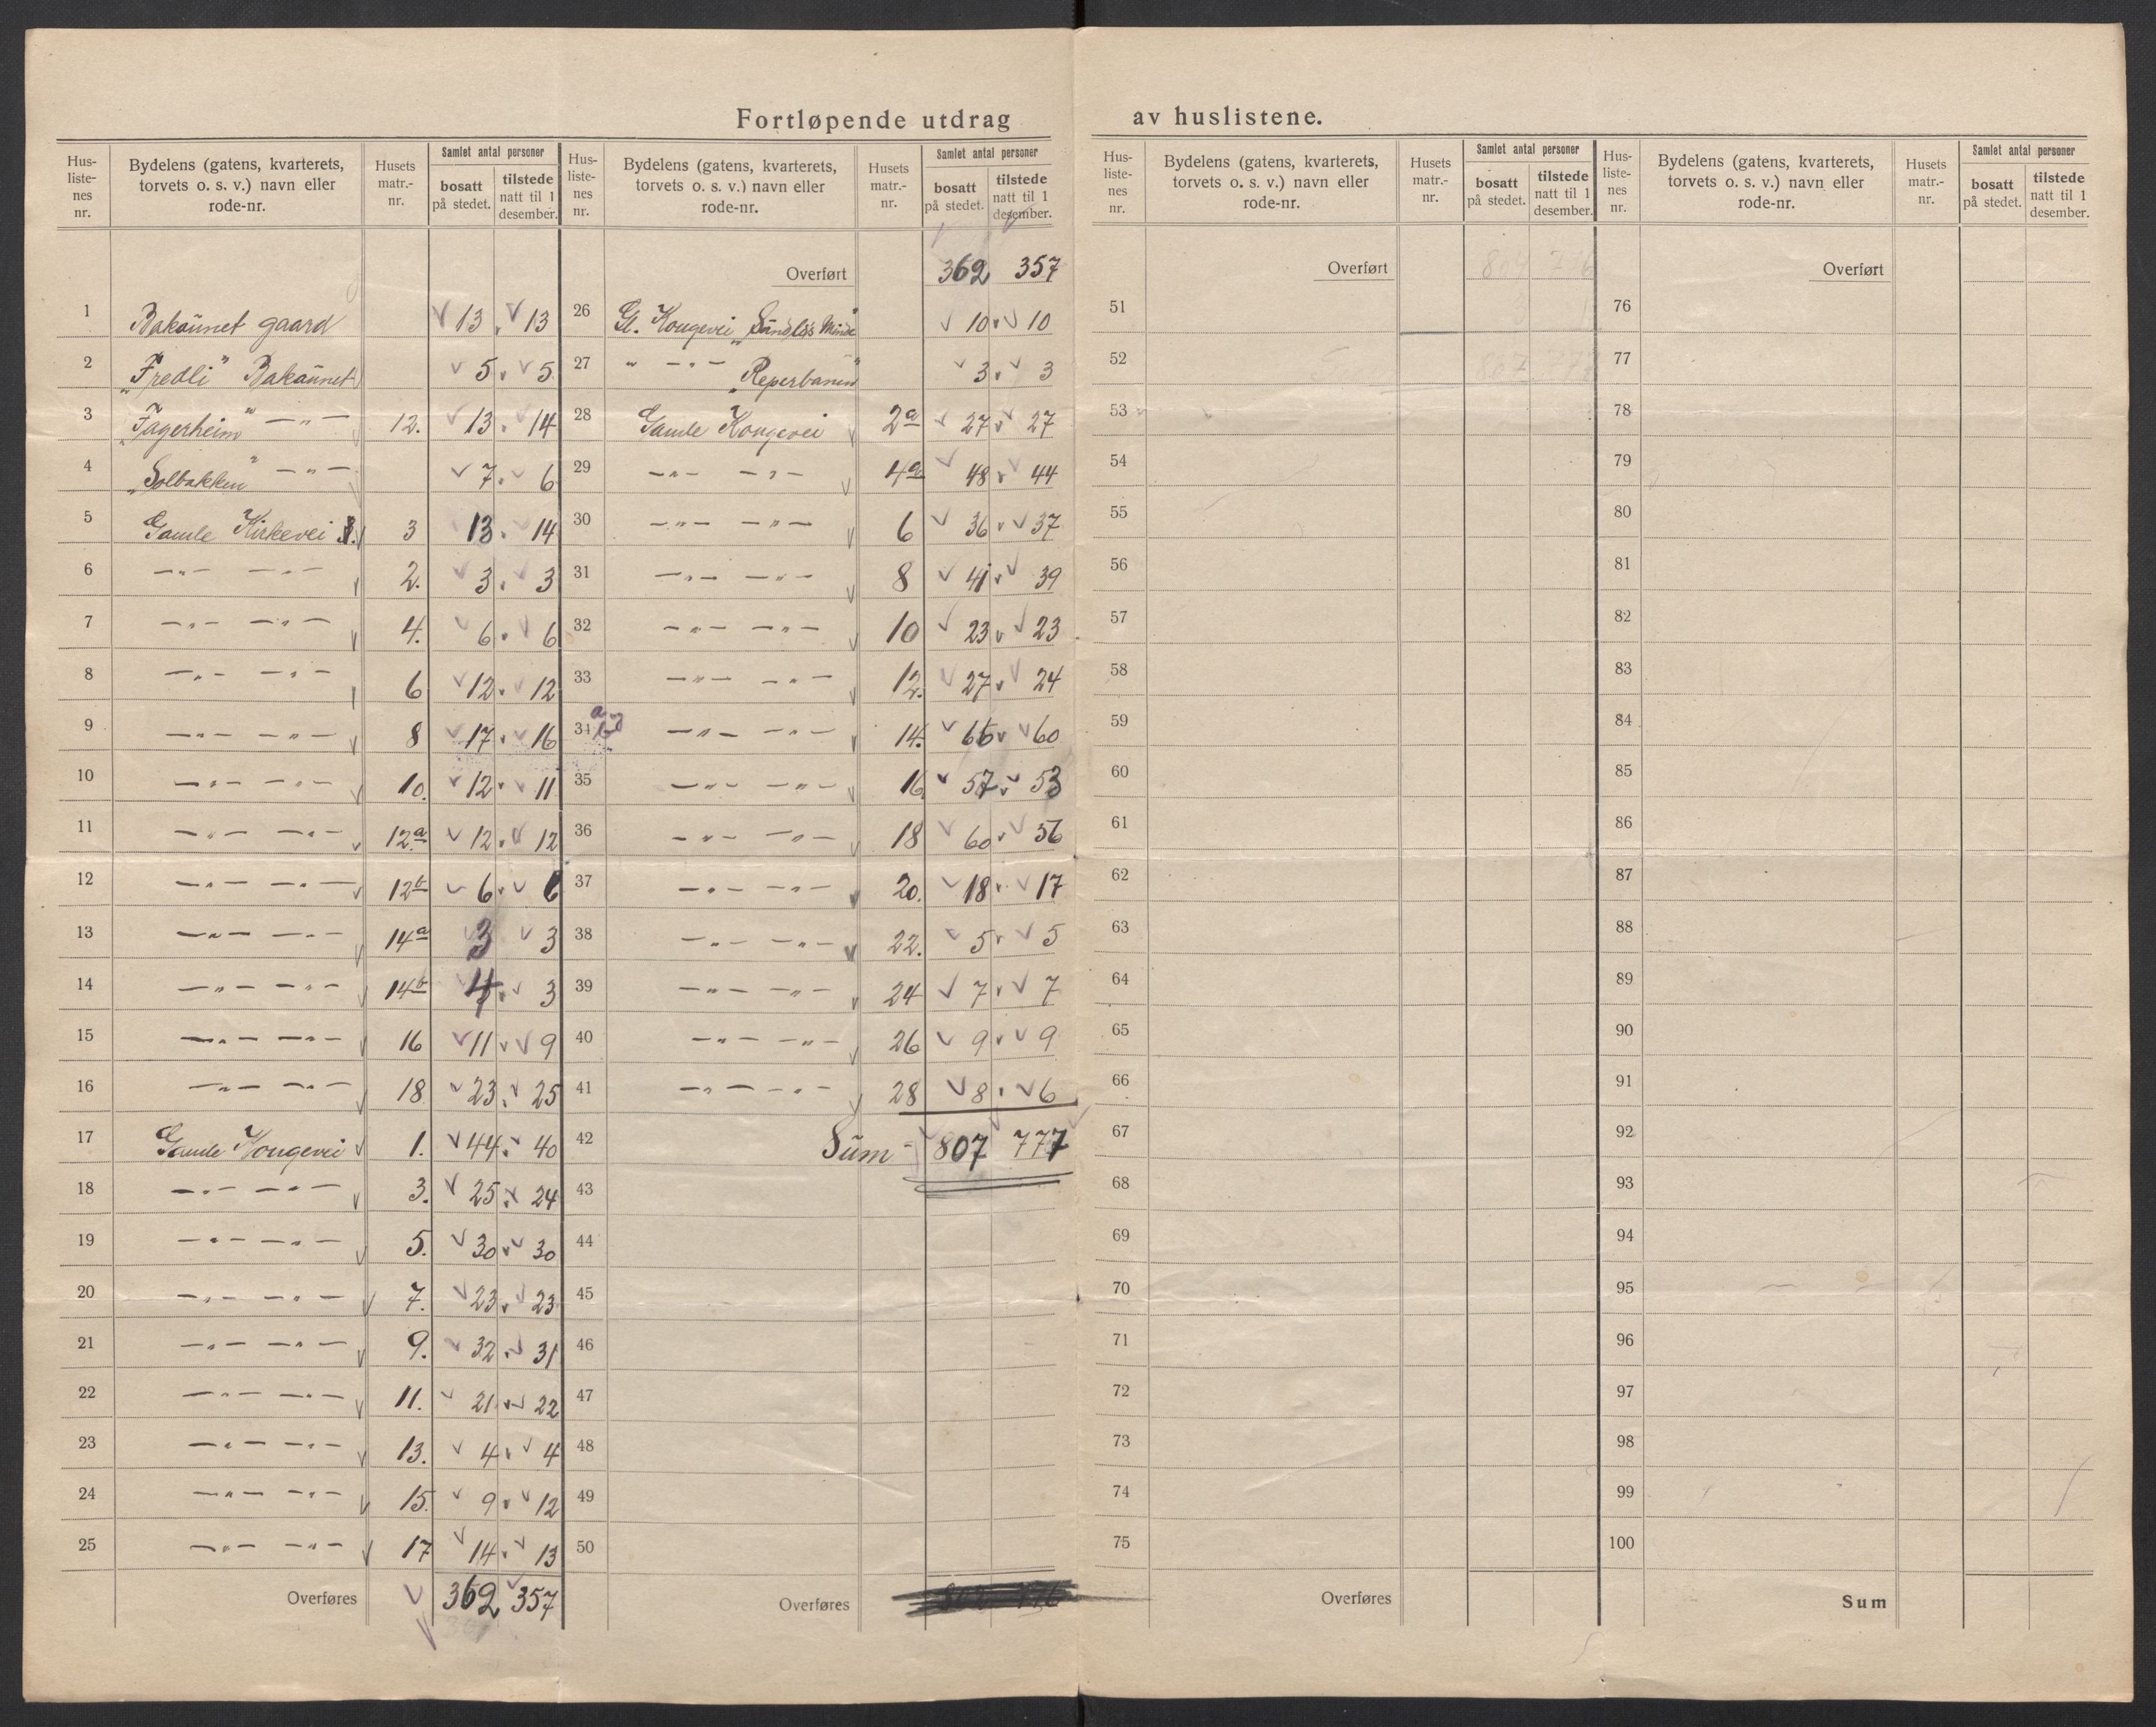 Fortløpende utdrag av huslistene.
Hus-listenes nr. | Bydelens (gatens, kvarterets, torvets o. s. v.) navn eller rode-nr. | Husets matr.-nr. | Samlet antal personer | bosatt på stedet. | tilstede natt til 1 desember.
1 Bakaunet gaard 13 13
2 "Fredli" Bakaunet 5 5
3 "Fagerheim" —"— 12. 13 14
4 "Solbakken" —"— 7 6
5 Gamle Kirkevei 3 13 14
6 —"— —"— 2. 3 3
7 —"— —"— 4. 6 6
8 —"— —"— 6 12 12
9 —"— —"— 8 17 16
10 —"— —"— 10. 12 11
11 —"— —"— 12a 12 12
12 —"— —"— 12b 6 6
13 —"— —"— 14a 3 3
14 —"— —"— 14b 4 3
15 —"— —"— 16 11 9
16 —"— —"— 18 23 25
17 Gamle Kongevei 1. 44 40
18 —"— —"— 3. 25 24
19 —"— —"— 5. 30 30
20 —"— —"— 7. 23 23
21 —"— —"— 9. 32 31
22 —"— —"— 11. 21 22
23 —"— —"— 13. 4 4
24 —"— —"— 15. 9 12
25 —"— —"— 17 14 13
Overføres 362 357
Hus-listenes nr. | Bydelens (gatens, kvarterets, torvets o. s. v.) navn eller rode-nr. | Husets matr.-nr. | Samlet antal personer | bosatt på stedet. | tilstede natt til 1 desember.
Overført 362 357
26 Gl. Kongevei Minde" 10 10
27 " —"— "Reperbanen" 3 3
28 Gamle Kongevei 2a 27 27
29 —"— —"— 4a 48 44
30 —"— —"— 6 36 37
31 —"— —"— 8 41 39
32 —"— —"— 10 23 23
33 —"— —"— 12. 27 24
34 —"— —"— 14. 66 60
35 —"— —"— 16 57 53
36 —"— —"— 18 60 56
37 —"— —"— 20. 18 17
38 —"— —"— 22. 5 5
39 —"— —"— 24 7 7
40 —"— —"— 26 9 9
41 —"— —"— 28 8 6
42 Sum 807 777
43
44
45
46
47
48
49
50
Overføres
Hus-listenes nr. | Bydelens (gatens, kvarterets, torvets o. s. v.) navn eller rode-nr. | Husets matr.-nr. | Samlet antal personer | bosatt på stedet. | tilstede natt til 1 desember.
Overført
51
52
53
54
55
56
57
58
59
60
61
62
63
64
65
66
67
68
69
70
71
72
73
74
75
Overføres
Hus-listenes nr. | Bydelens (gatens, kvarterets, torvets o. s. v.) navn eller rode-nr. | Husets matr.-nr. | Samlet antal personer | bosatt på stedet. | tilstede natt til 1 desember.
Overført
76
77
78
79
80
81
82
83
84
85
86
87
88
89
90
91
92
93
94
95
96
97
98
99
100
Sum